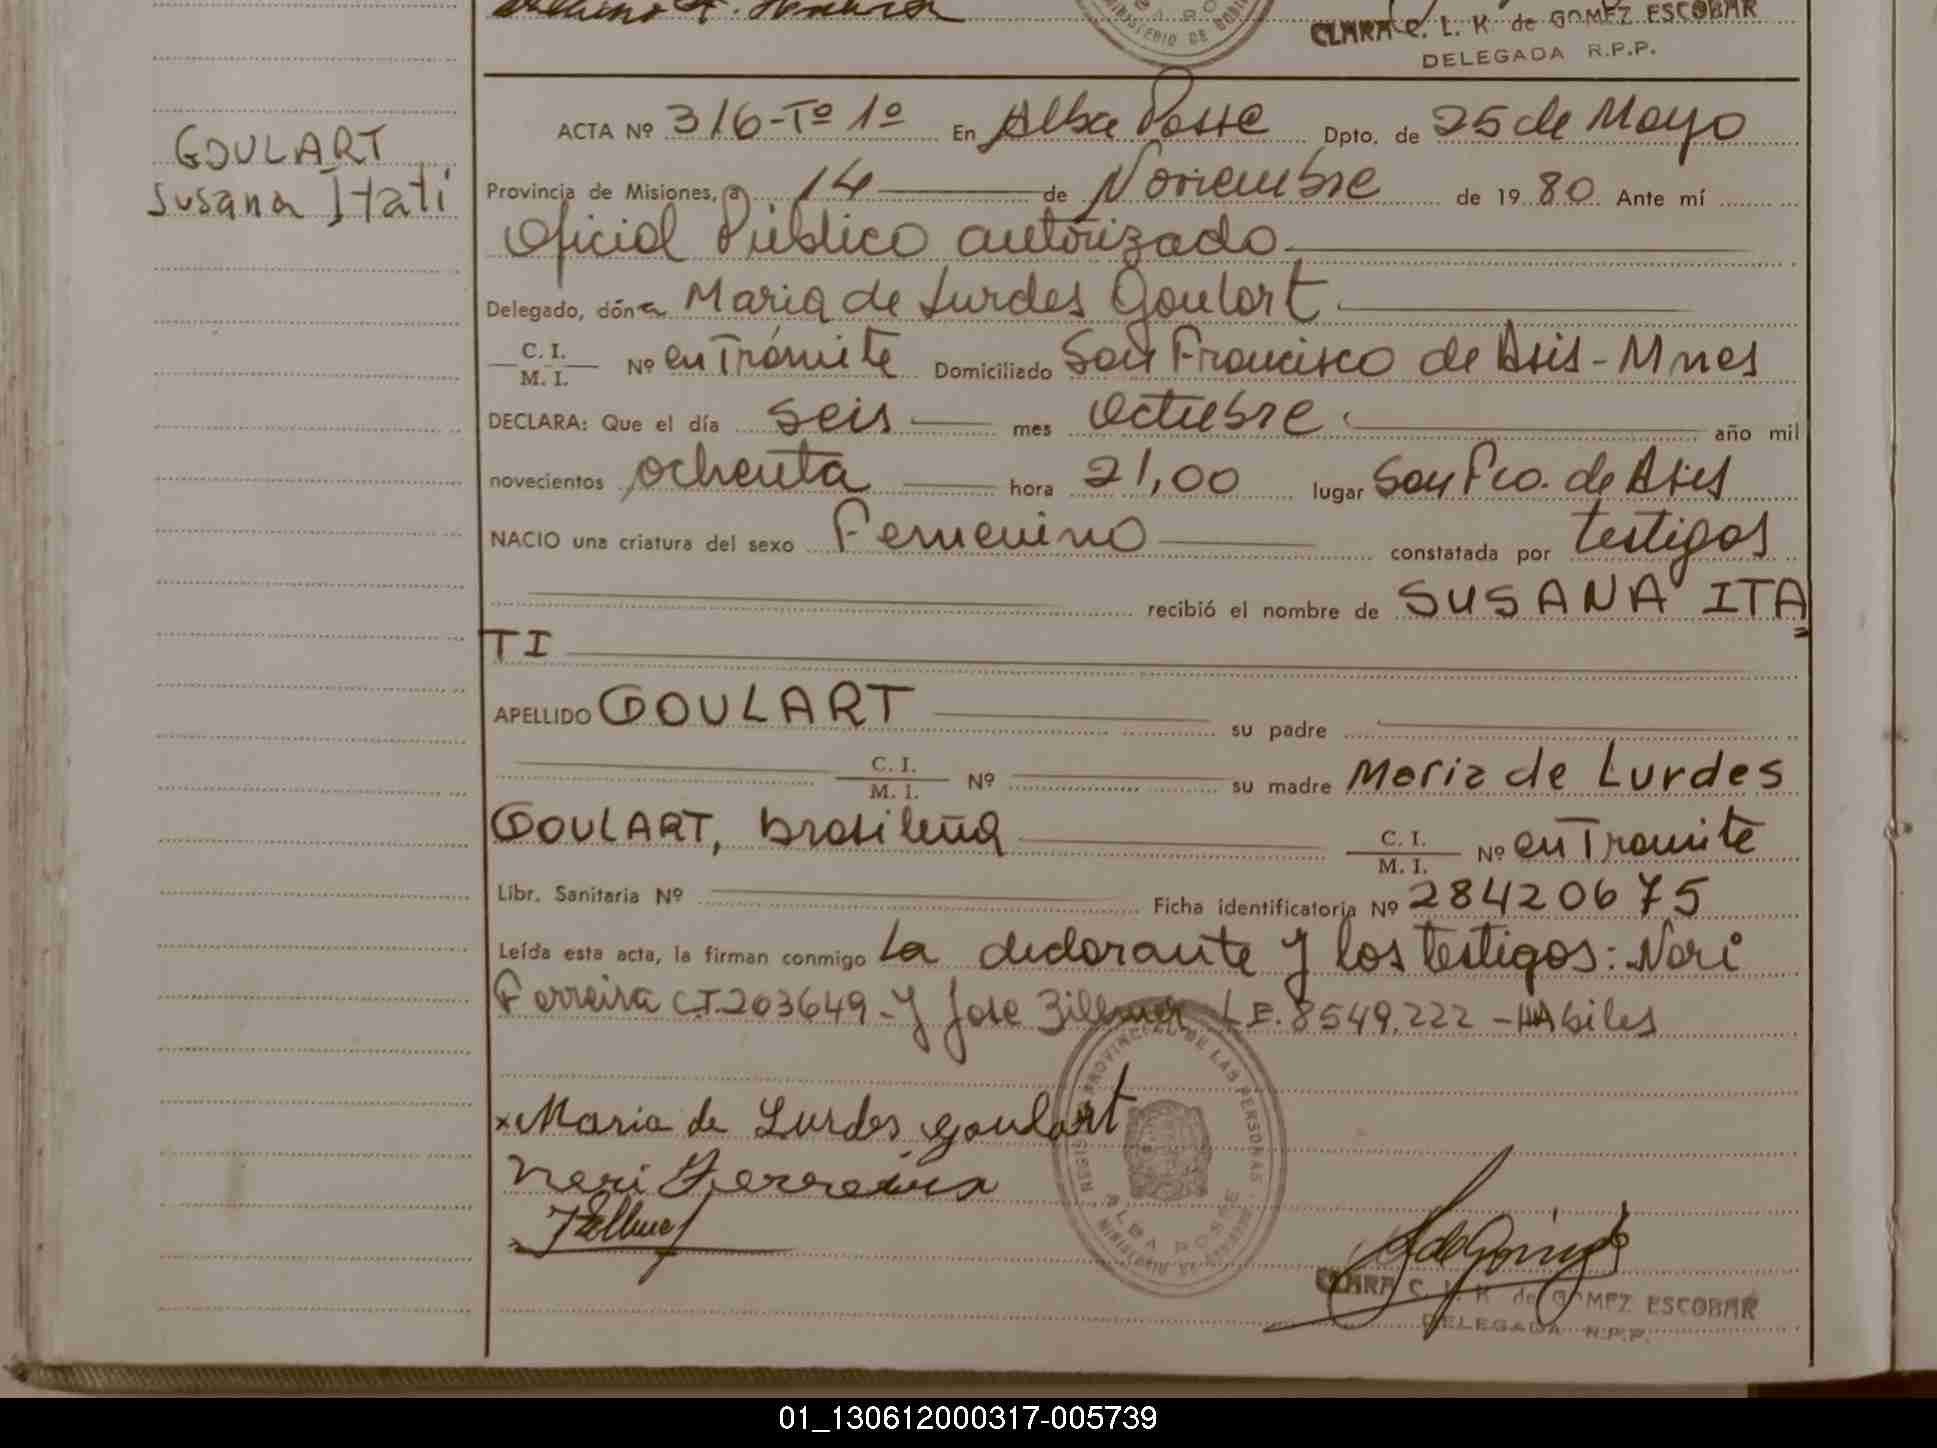 CLARA C. L. K. de GOMEZ ESCOBAR
DELEGADA R.P.P.
GOULART
Susana Itati
ACTA Nº 316-Tº 1º En Alba Posse Dpto. de 25 de Mayo
Provincia de Misiones, a 14 de Noviembre de 1980. Ante mí
Oficial Público autorizado
Delegado, dóna Maria de Lurdes Goulart
C. I.
M. I. Nº en Trámite Domiciliado San Francisco de Asis - Mnes
DECLARA: Que el día seis mes octubre año mil
novecientos ochenta hora 21,00 lugar San Fco. de Asis
NACIO una criatura del sexo Femenino constatada por testigos
recibió el nombre de SUSANA ITA
TI
APELLIDO GOULART su padre
C. I.
M. I. Nº su madre Maria de Lurdes
GOULART, brasileña C. I.
M. I. Nº en Tramite
Libr. Sanitaria Nº Ficha identificatoria Nº 28420675
Leída esta acta, la firman conmigo la declarante y los testigos: Neri
Ferreira C.I. 203649 - y Jose Zillmer L.E. 8549.222 - HAbiles
x Maria de Lurdes goulart
Neri Ferreira
REGISTRO PROVINCIAL DE LAS PERSONAS
ALBA POSSE
CLARA C. L. K de GOMEZ ESCOBAR
DELEGADA R.P.P.
01_130612000317-005739